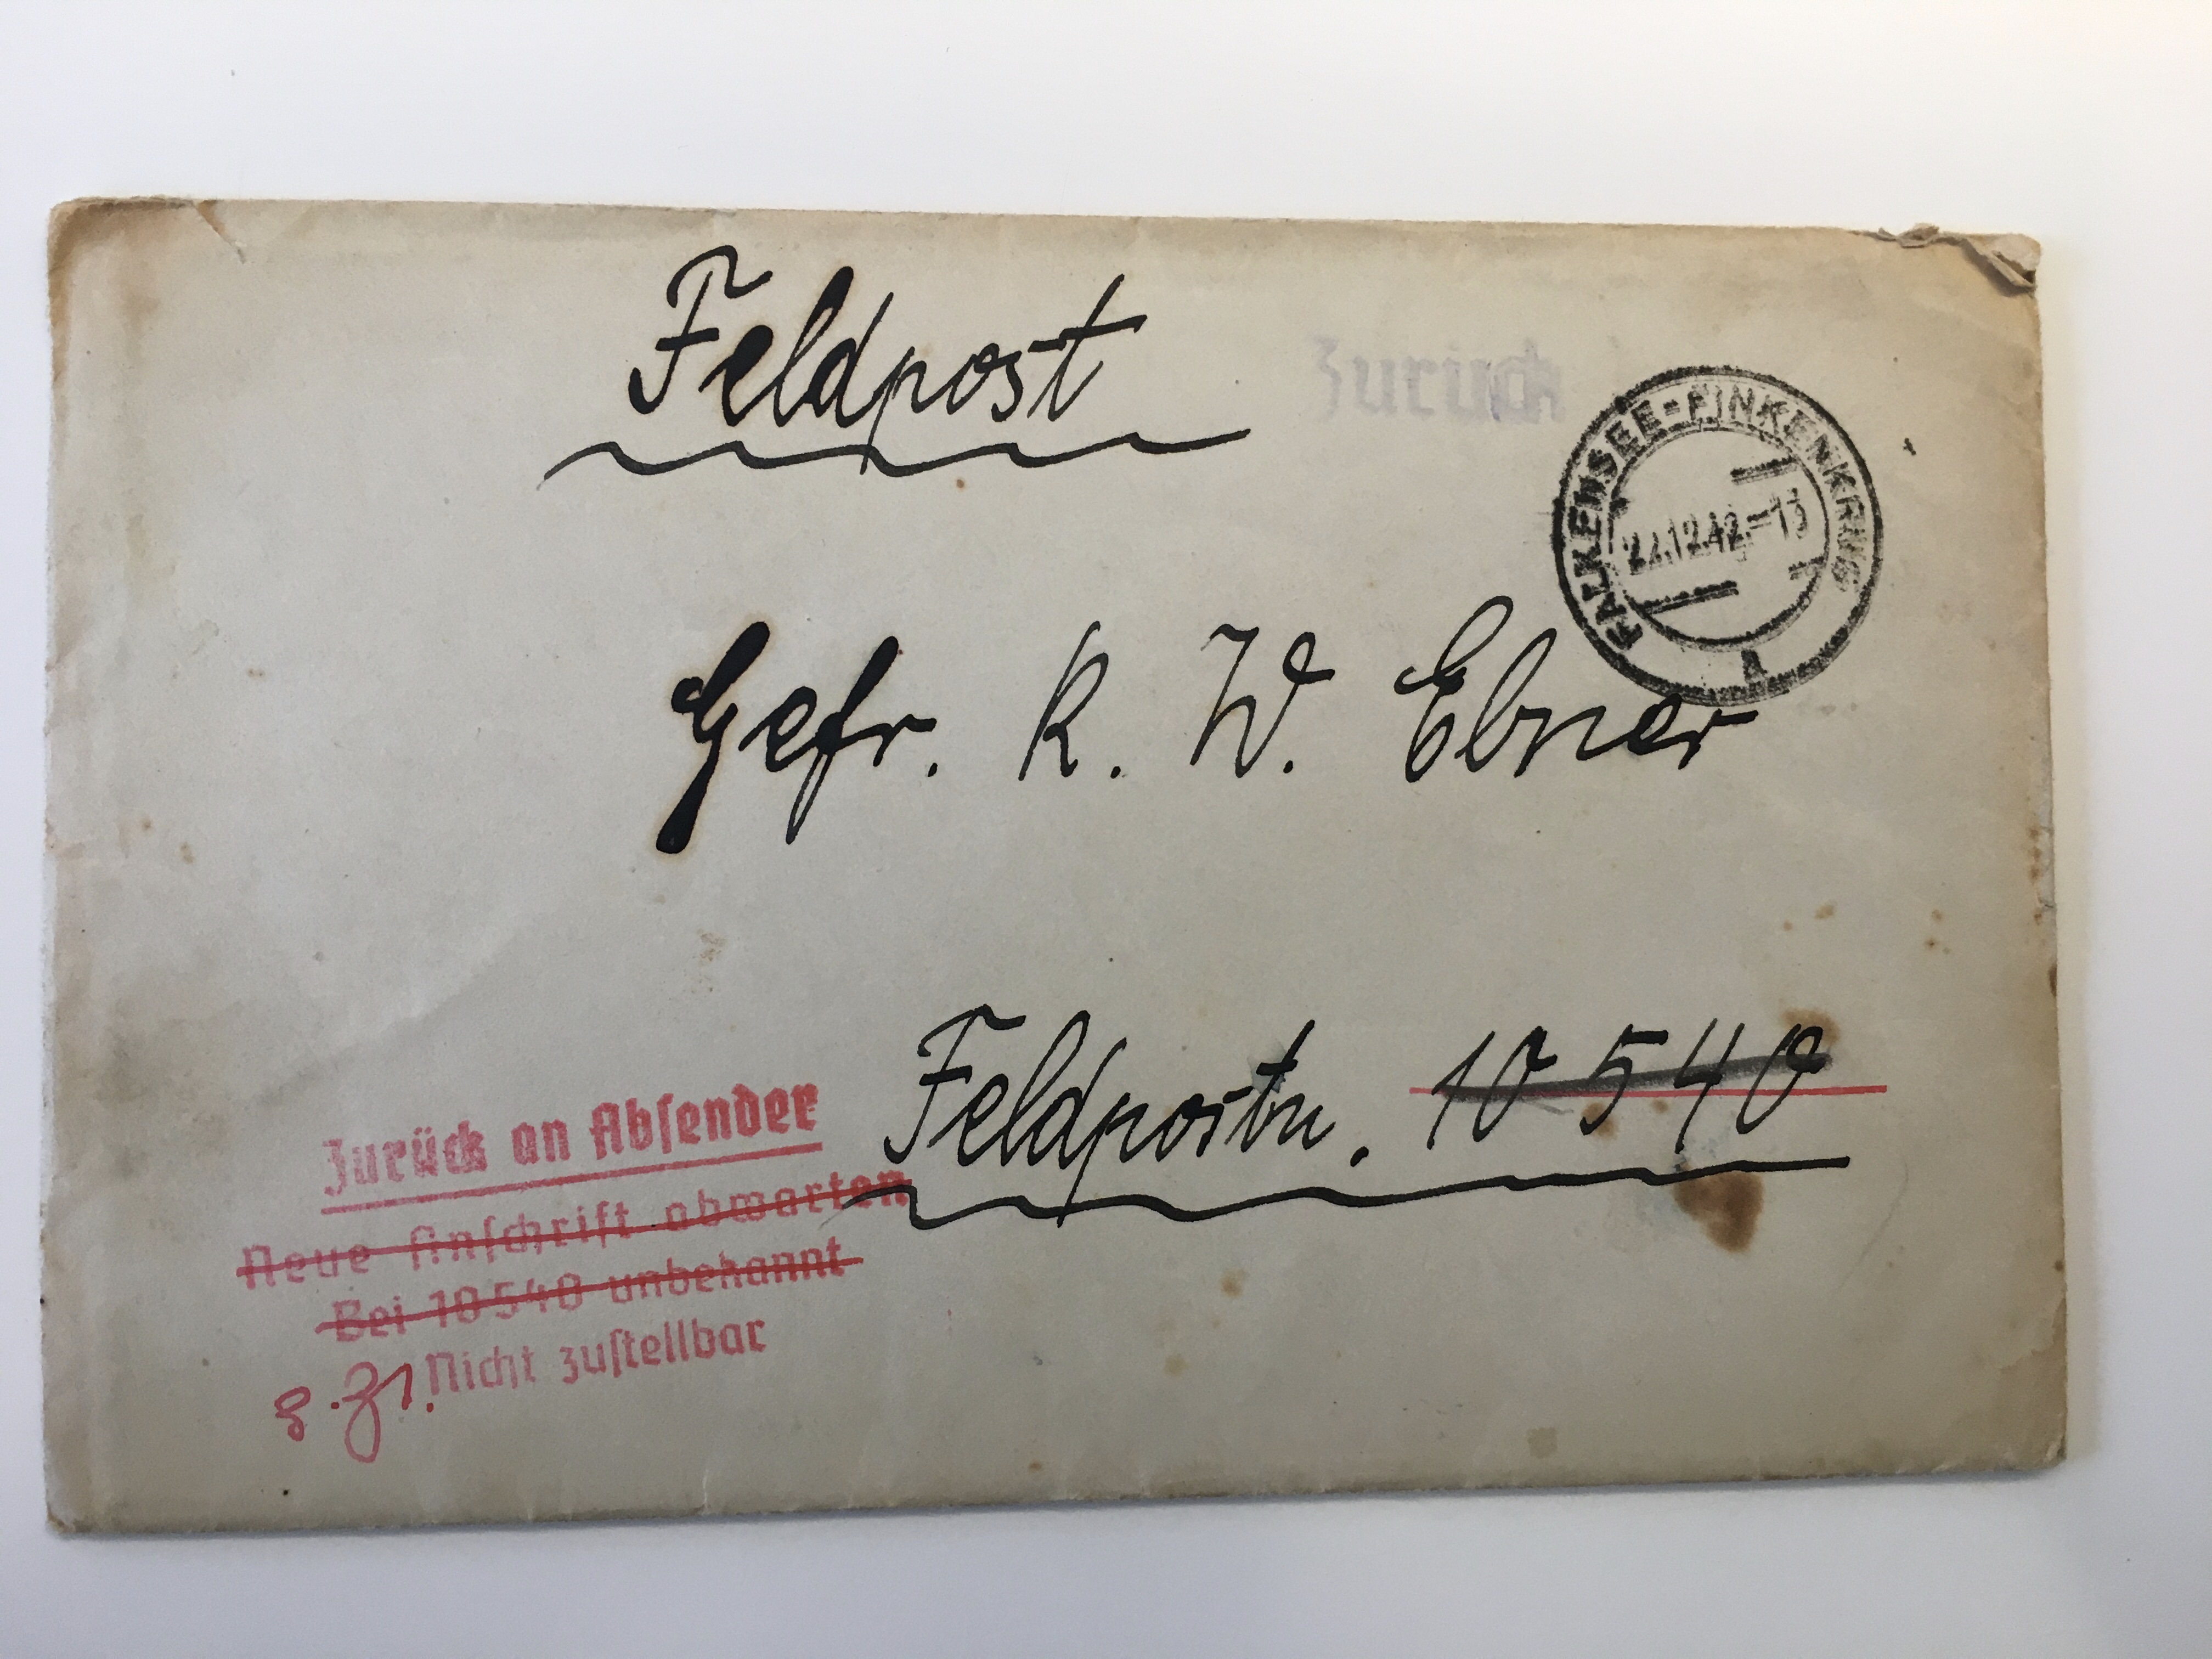 Feldpost
Zurück
FALKENSEE-FINKENKRUG
12.42.-13
Gefr. K. W. Ebner
Feldpostn. 10 540
Zurück an Absender
Neue Anschrift abwarten
Bei 10540 unbekannt
Nicht zustellbar